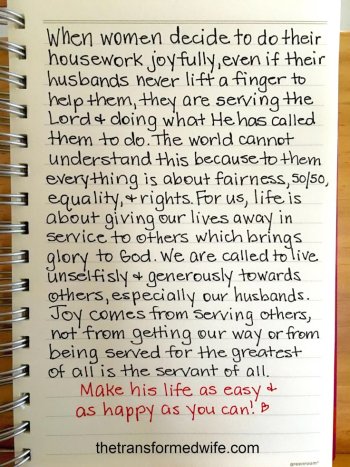 When women decide to do their
housework joyfully, even if their
husbands never lift a finger to
help them, they are serving the
Lord & doing what He has called
them to do. The world cannot
understand this because to them
everything is about fairness, 50/50,
equality, & rights. For us, life is
about giving our lives away in
service to others which brings
glory to God. We are called to live
unselfishly & generously towards
others, especially our husbands.
Joy comes from serving others,
not from getting our way or from
being served for the greatest
of all is the servant of all.
Make his life as easy &
as happy as you can!
thetransformedwife.com